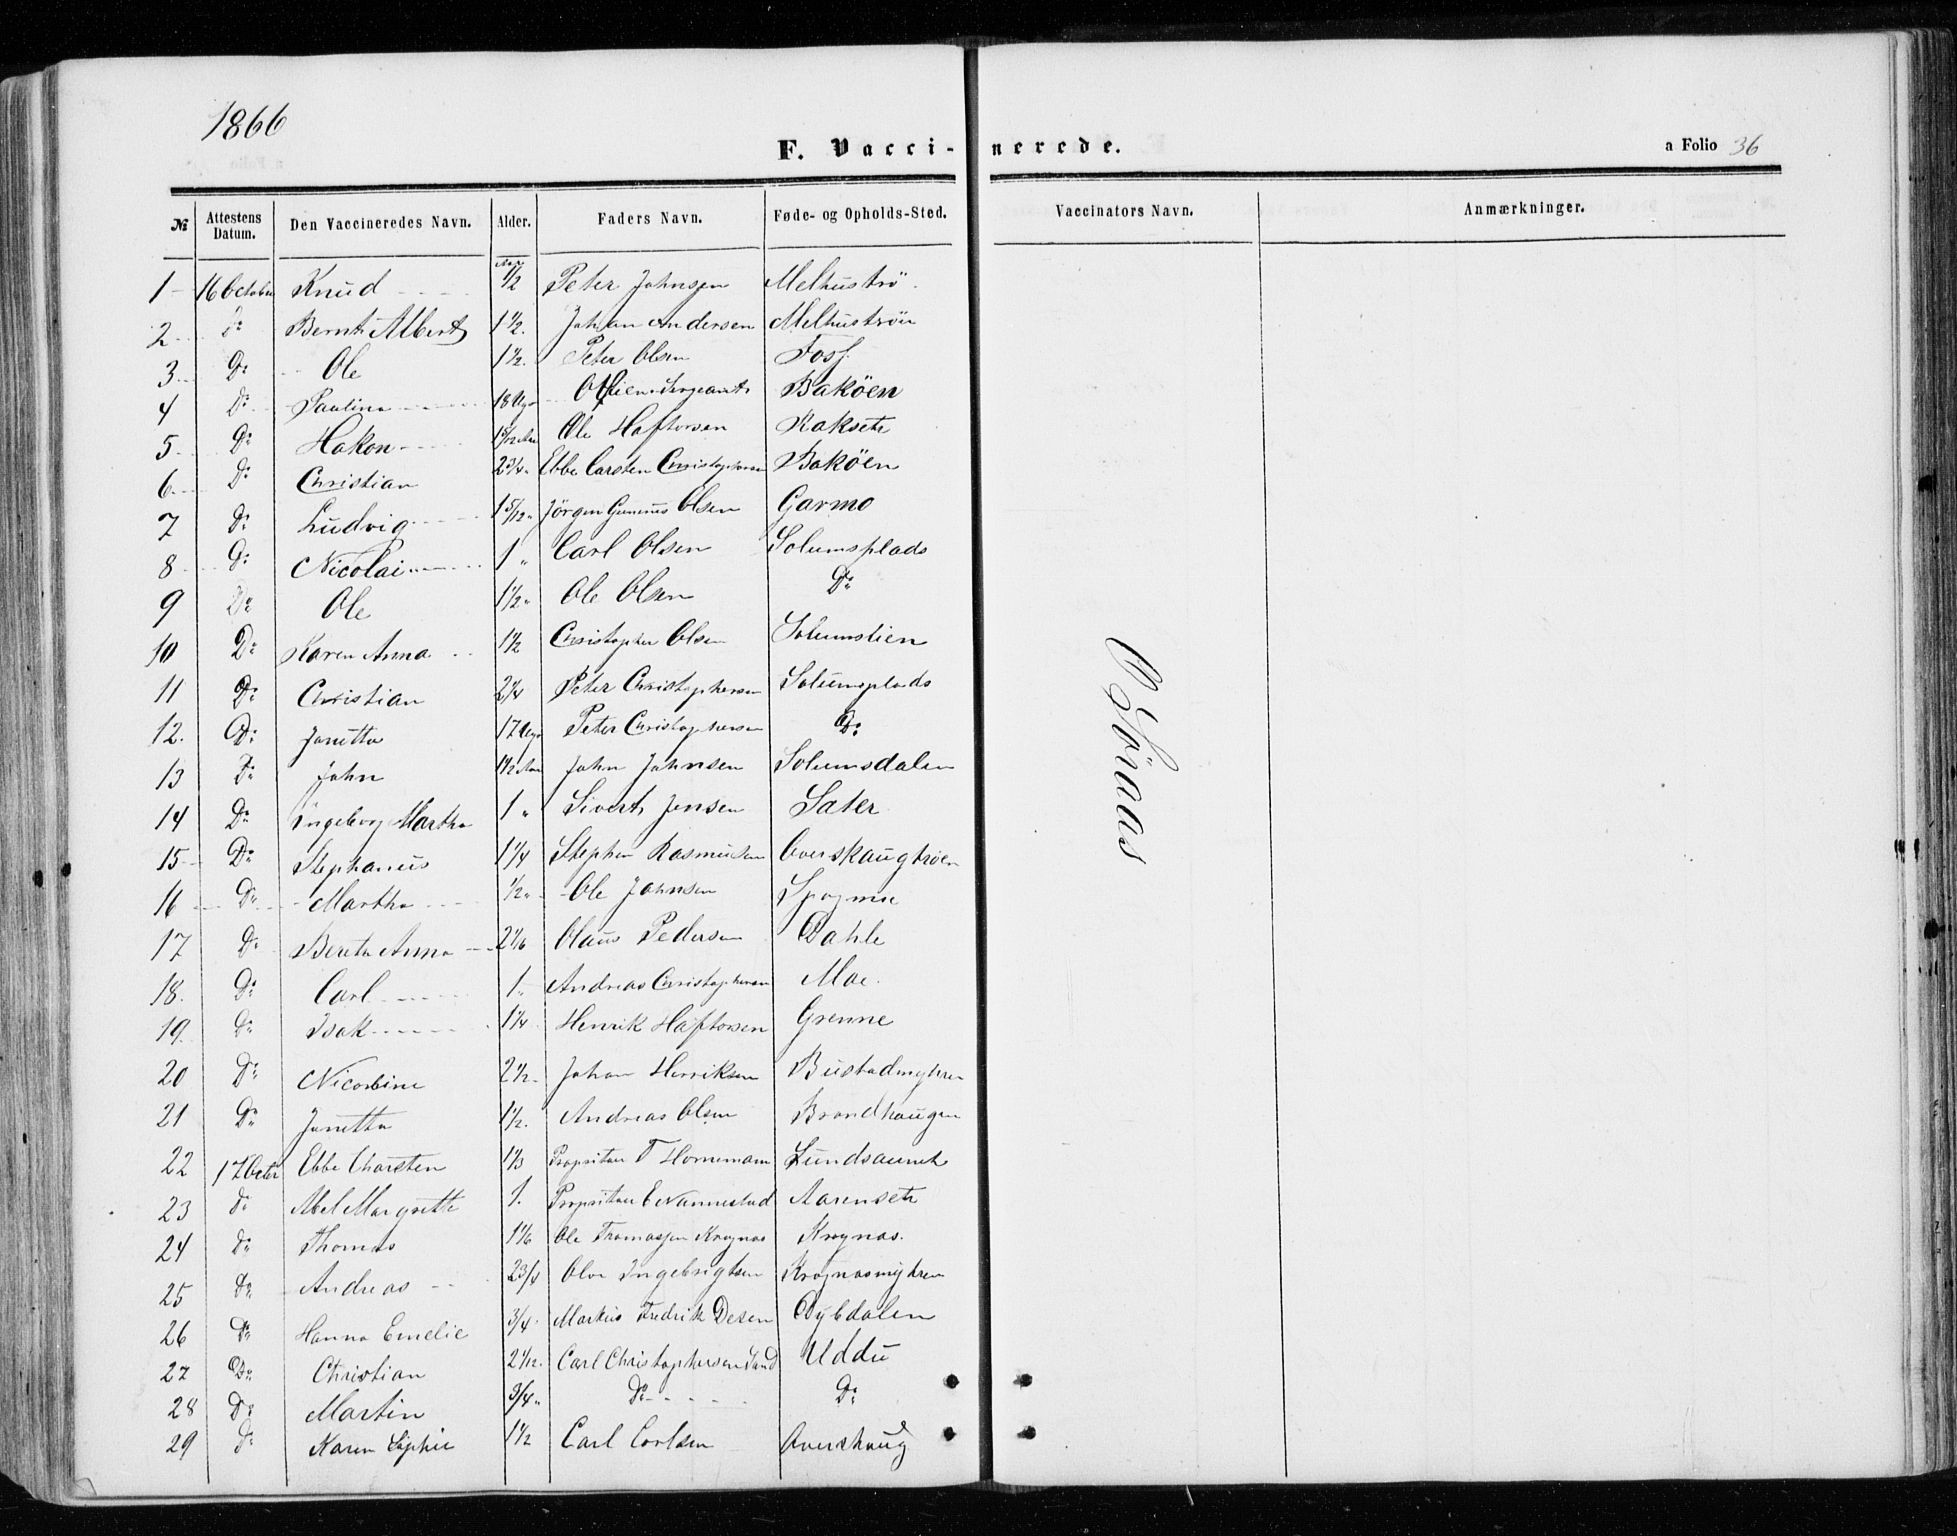 1866
F. Vaccinerede.
a Folio 36
№ Attestens Datum. Den Vaccineredes Navn. Alder. Faders Navn. Føde- og Opholds-Sted. Vaccinators Navn. Anmærkninger.
1 16 October Knud 1/2 Peter Johnsen Melhuströ
2 Do Bernt Albert 1 1/2 Johan Andersen Melhuströen
3 Do Ole 1 1/2 Peter Olsen Foss
4 Do Paulina 18 Uger Sergeant Baköen
5 Do Hakon Ole Haftorsen Kaksete
6 Do Christian 2 3/4 Ebbe Carsten Christophersen Baköen
7 Do Ludvig 1 5/12 Jörgen Olsen Garmo
8 Do Nicolai 1 " Carl Olsen Solumsplads
9 Do Ole 1 1/2 Ole Olsen Do
10 Do Karen Anna 1 1/2 Christopher Olsen Solumslien
11 Do Christian 2 1/4 Peter Christophersen Solumsplads
12. Do Janetta 17 Uger Peter Christophersen Do
13 Do John 1 1/2 Aar John Johnsen Solumsdalen
14 Do Ingeborg Martha 1 " Sivert Jensen Sæter
15 Do Stephanus 1 1/4 Stephen Rasmusen Overskaugtröen
16 Do Martha 1/2 Ole Johnsen Spogmse
17 Do Bereta Anna 2 1/6 Olaus Pedersen Dahle
18. Do Carl 1 Andreas Christophersen Moe.
19. Do Isak 1 1/4 Henrik Haftorsen Grenne
20 Do Nicoline 2 1/2 Johan Henriksen Bustadmyhren
21 Do Janetta 1 1/2. Andreas Olsen Brandhaugen
22 17 Octbr Ebbe Charsten 1 1/3 Propritær T Hornemann Lundsaunet
23 Do Abel Margrette 1. Propritær E Nannestad Aarensete
24 Do Thomas 1 1/6 Ole Thomassen Krognæs Krognæs.
25 Do Andreas 2 3/4 Oluf Ingebrigtsen Krognæsmyhren
26 Do Hanna Emelie 3/4 Markus Fredrik Desen Dybdalen
27 Do Christian 2 1/12. Carl Christophersen Sand Uddu
28 Do Martin 3/4 Do Do
29 Do Karen Sophie 1 1/2 Carl Carlsen Overskaug
O Söraas